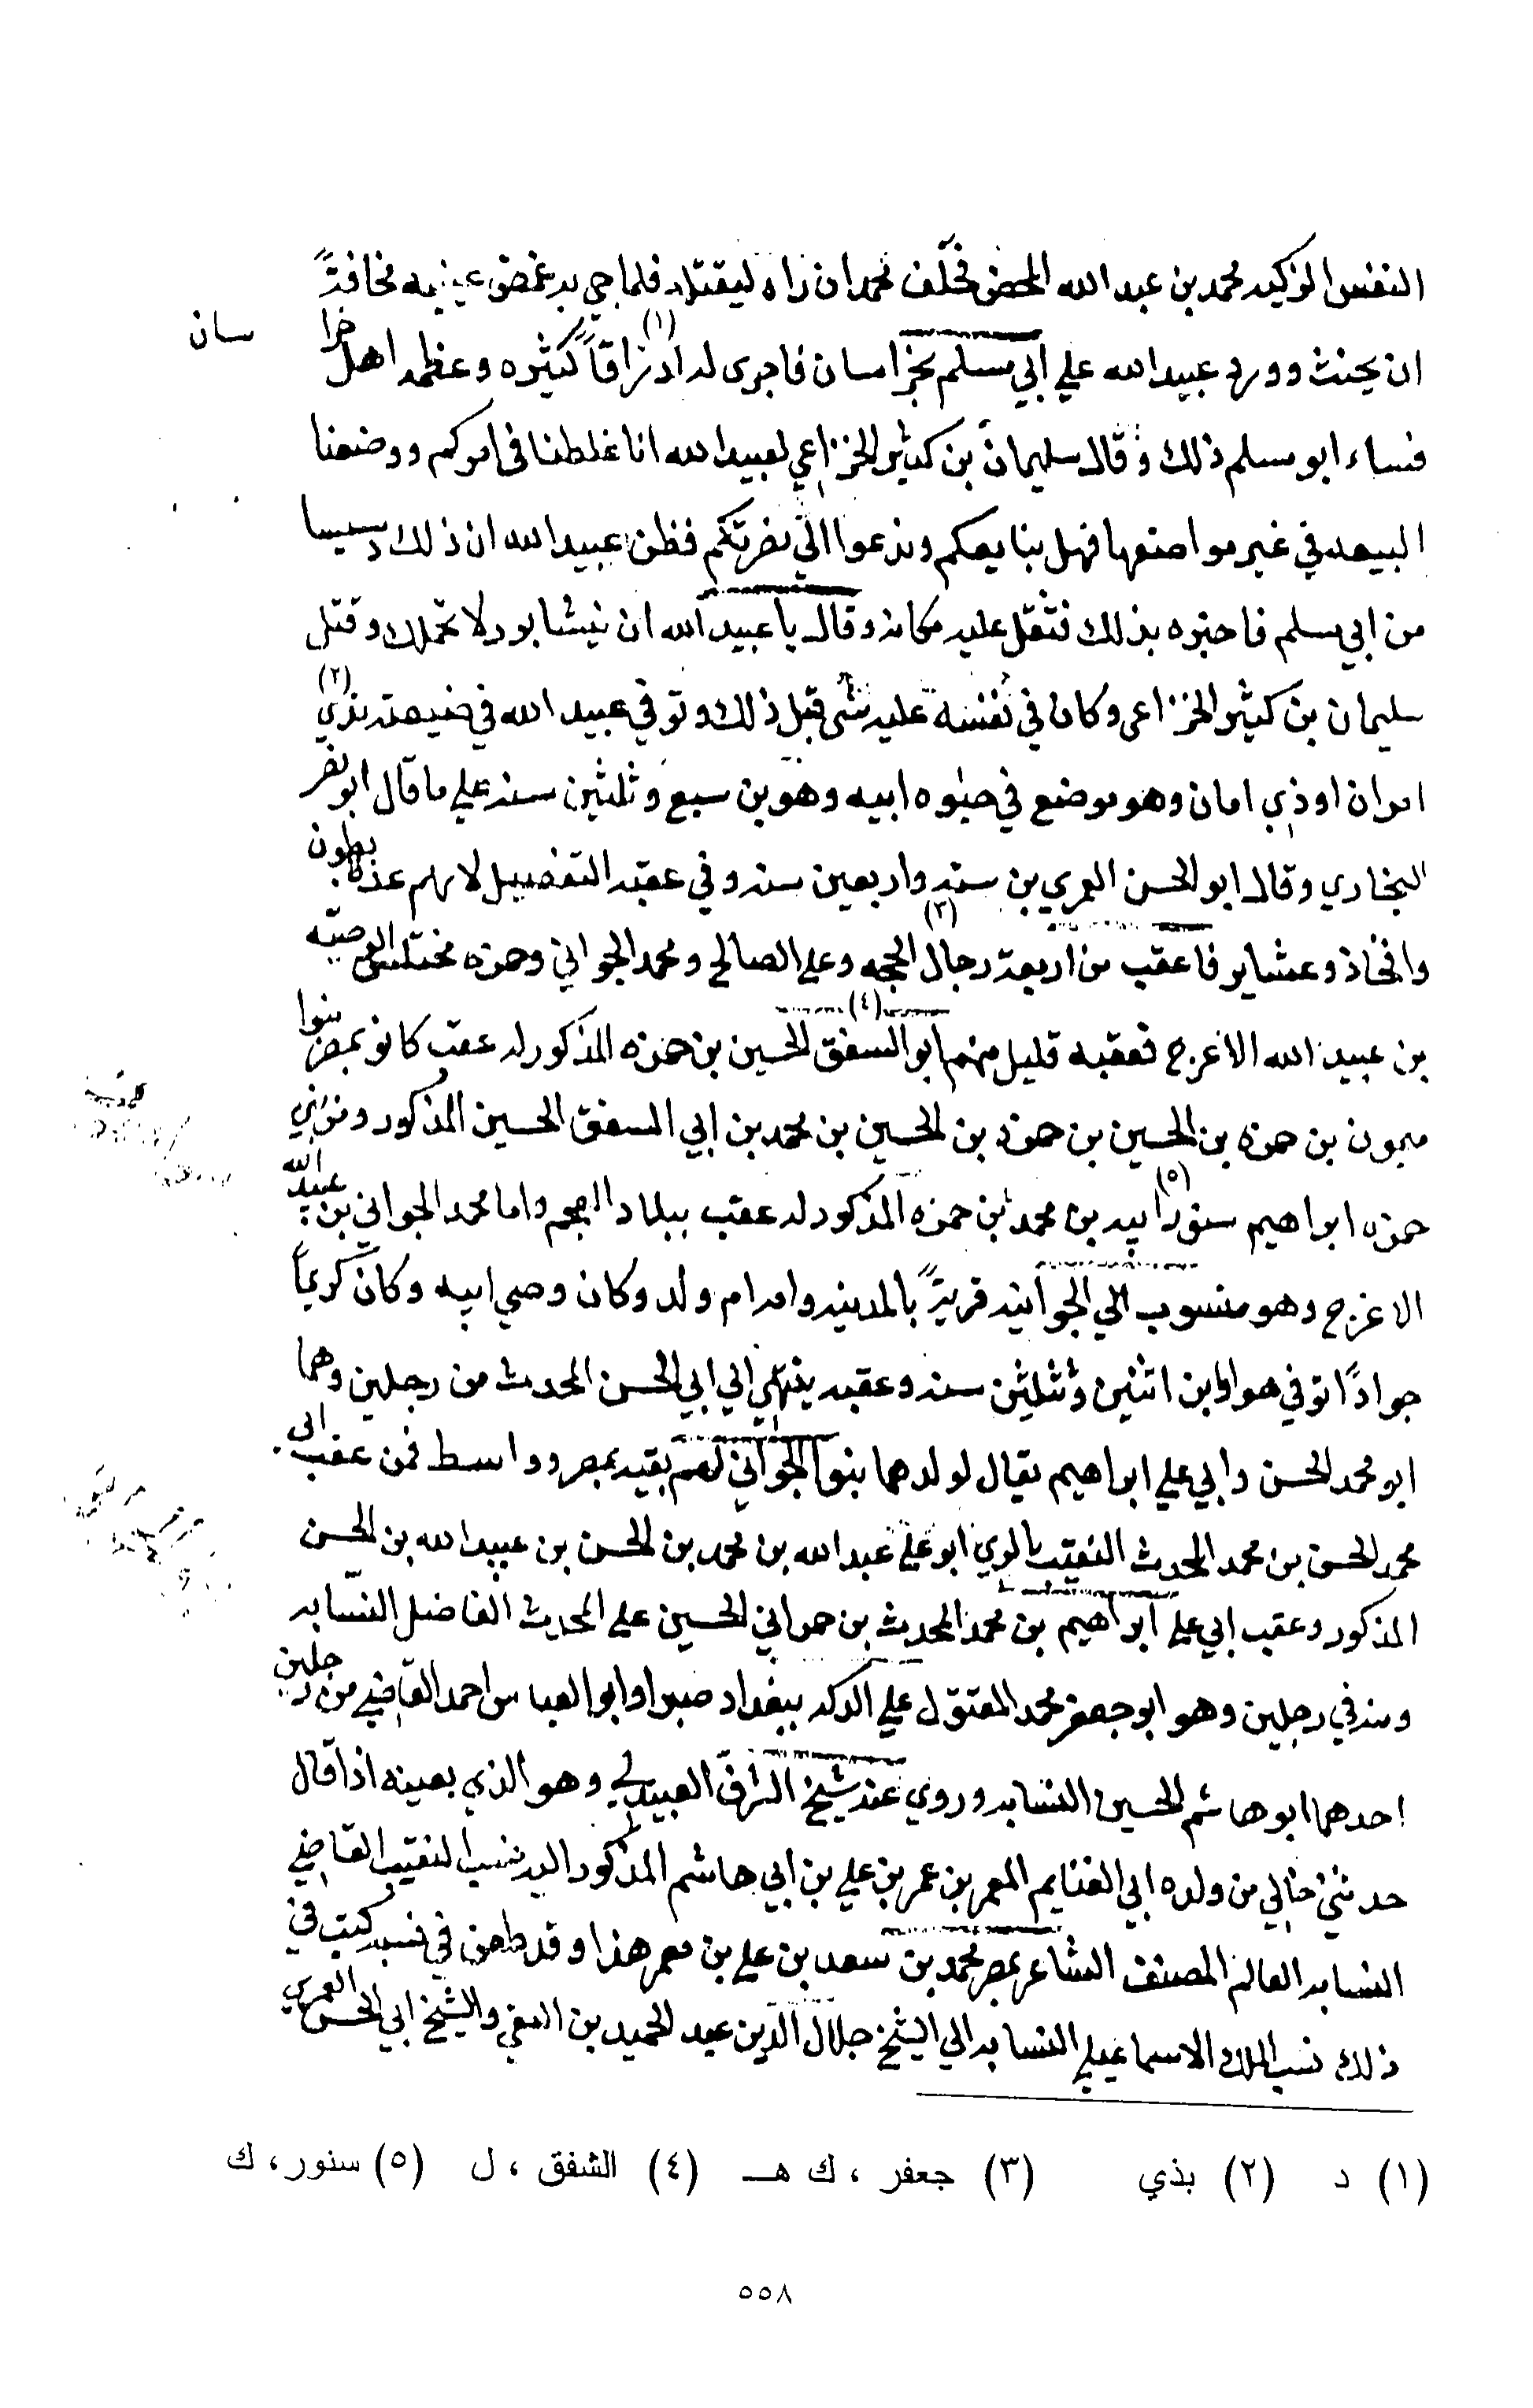 النفس الزكيه محمد بن عبد الله المحض فحلف محمد ان راه ليقتله فلما جي به غمض عينيه مخافةً
ان يحنث وورد عبيد الله علي ابي مسلم بخراسان فاجرى له ارزاقاً (١) كثيره وعظمه اهل خرا سان
فساء ابو مسلم ذلك وقال سليمان بن كثير الخزاعي لعبيد الله انا غلطنا في امركم ووضعنا
البيعه في غير مواضعها فهل نبايعكم وندعوا الي نصرتكم فظن عبيد الله ان ذلك دسيسا
من ابي مسلم فاخبره بذلك فثقل عليه مكانه وقال يا عبيد الله ان نيشابور لا تحملك وقتل
سليمان بن كثير الخزاعى وكان في نفسه عليه شى قبل ذلك وتوفي عبيد الله في ضيعته بذي (٢)
امران او ذي امان وهو موضع في حيوه ابيه وهو بن سبع وثلثين سنه علي ما قال ابو نصر
البخاري وقال ابو الحسن العمري بن سته واربعين سنه وفي عقبه التفصيل لانهم عدة بطون
وافخاذ وعشاير فاعقب من اربعة رجال الحجه (٣) وعلى الصالح ومحمد الجواني وحمزه مختلس الوصيّه
بن عبيد الله الاعرج فعقبه قليل منهم ابو السفق (٤) الحسين بن حمزه المذكور له عقب كانو بمصر بنوا
ميمون بن حمزه بن الحسين بن حمزه بن الحسين بن محمد بن ابي السفق الحسين المذكور ومن بني
حمزه ابراهيم سنور (٥) ابيه بن محمد بن حمزه المذكور له عقب ببلاد العجم واما محمد الجواني بن عبيد الله
الاعرج وهو منسوب الي الجوانيه قريةً بالمدينه وامه ام ولد وكان وصي ابيه وكان كريماً
جوادًا توفي هو ابن اثنين وثلثين سنه وعقبه ينتهي الي ابي الحسن المحدث من رجلين وهما
ابو محمد الحسن وابي علي ابراهيم يقال لولدهما بنو الجواني لهم بقيه بمصر وواسط فمن عقب ابى
محمد الحسن بن محمد المحدث النقيب بالري ابو على عبد الله بن محمد بن الحسن بن عبيد الله بن الحسن
المذكور وعقب ابي علي ابراهيم بن محمد المحدث بن الحسين علي المحدث الفاضل النسّابه
ومنه في رجلين وهو ابو جعفر محمد المقتول علي الدكه ببغداد صبرا وابو العباس احمد القاضي من رجلين
احدهما ابو هاشم الحسين النسابه وروي عنه شيخ الشرف العبيدلي وهو الذي يعينه اذا قال
حدثني خالي من ولده ابي الغنايم المعمر بن عمر بن علي بن ابي هاشم المذكور اليه نسب النقيب القاضي
النسابه العالم المصنف الشاعر بمصر محمد بن سعد بن علي بن معمر هذا وقد طعن في نسبه كتب في
ذلك نسب الملك الاسماعيلي النسابه الي الشيخ جلال الدين عبد الحميد بن التقي والشيخ ابي الحسن العمري
(١) د (٢) بذي (٣) جعفر ، ك هـ (٤) الشفق ، ل (٥) سنور ، ك
٥٥٨